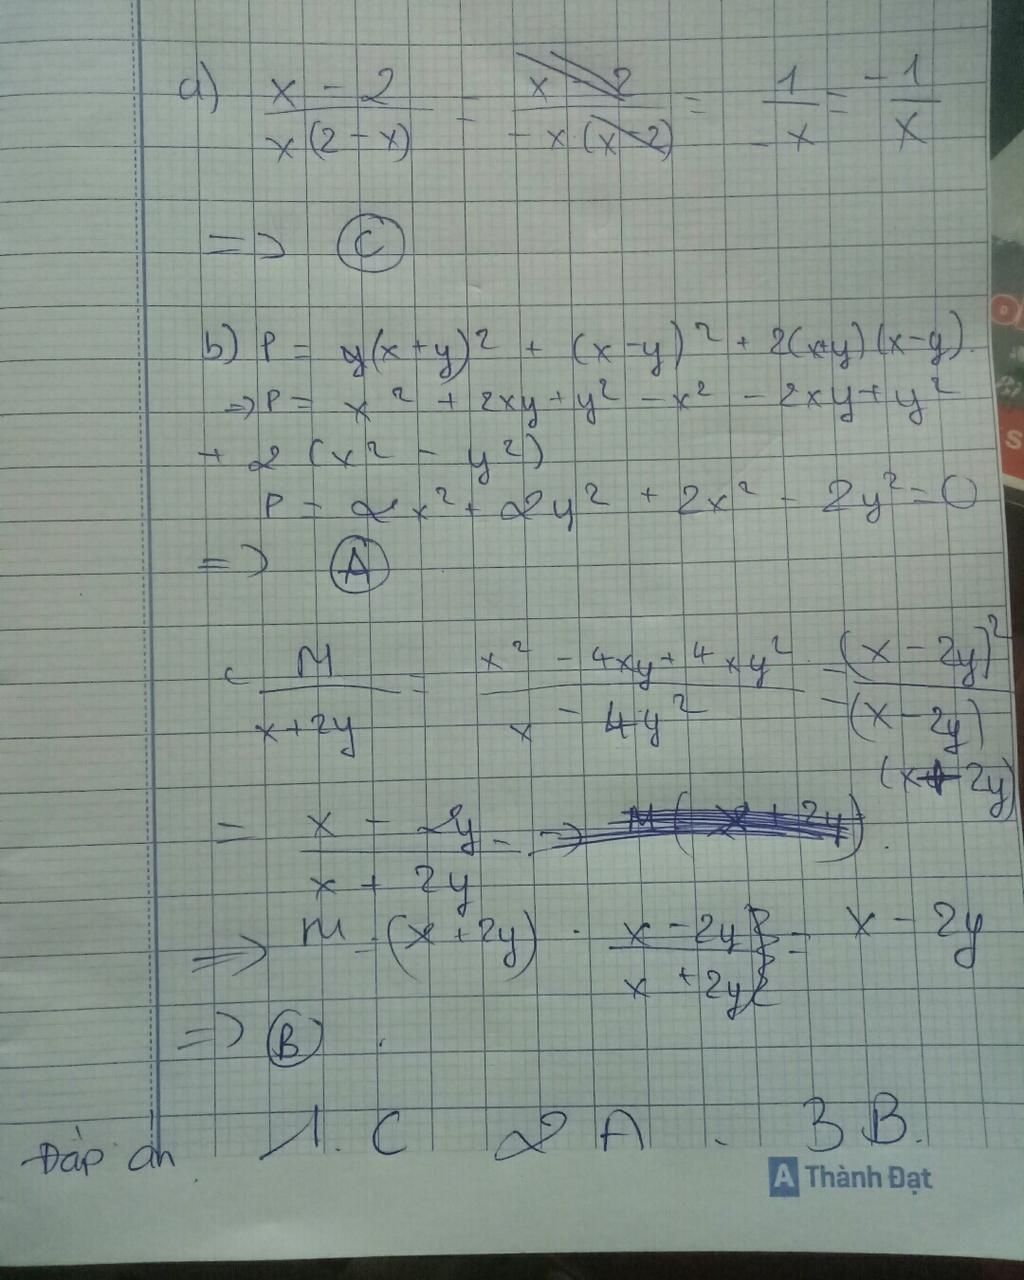 a) x - 2 / x(2 - x) = x - 2 / - x (x - 2) = 1 / - x = - 1 / x
=> C
b) P = y(x + y)² + (x - y)² + 2(x+y)(x-y).
=> P = x² + 2xy + y² - x² - 2xy + y²
+ 2 (x² - y²)
P = 2x² + 2y² + 2x² - 2y² = 0
=> A
c M / x + 2y = x² - 4xy + 4xy² / x - 4y² = (x - 2y)² / (x - 2y) (x + 2y)
= x - 2y / x + 2y =>
=> M = (x + 2y) . x - 2y / x + 2y = x - 2y
=> B .
Đáp án 1. C 2 A . 3 B.
A Thành Đạt